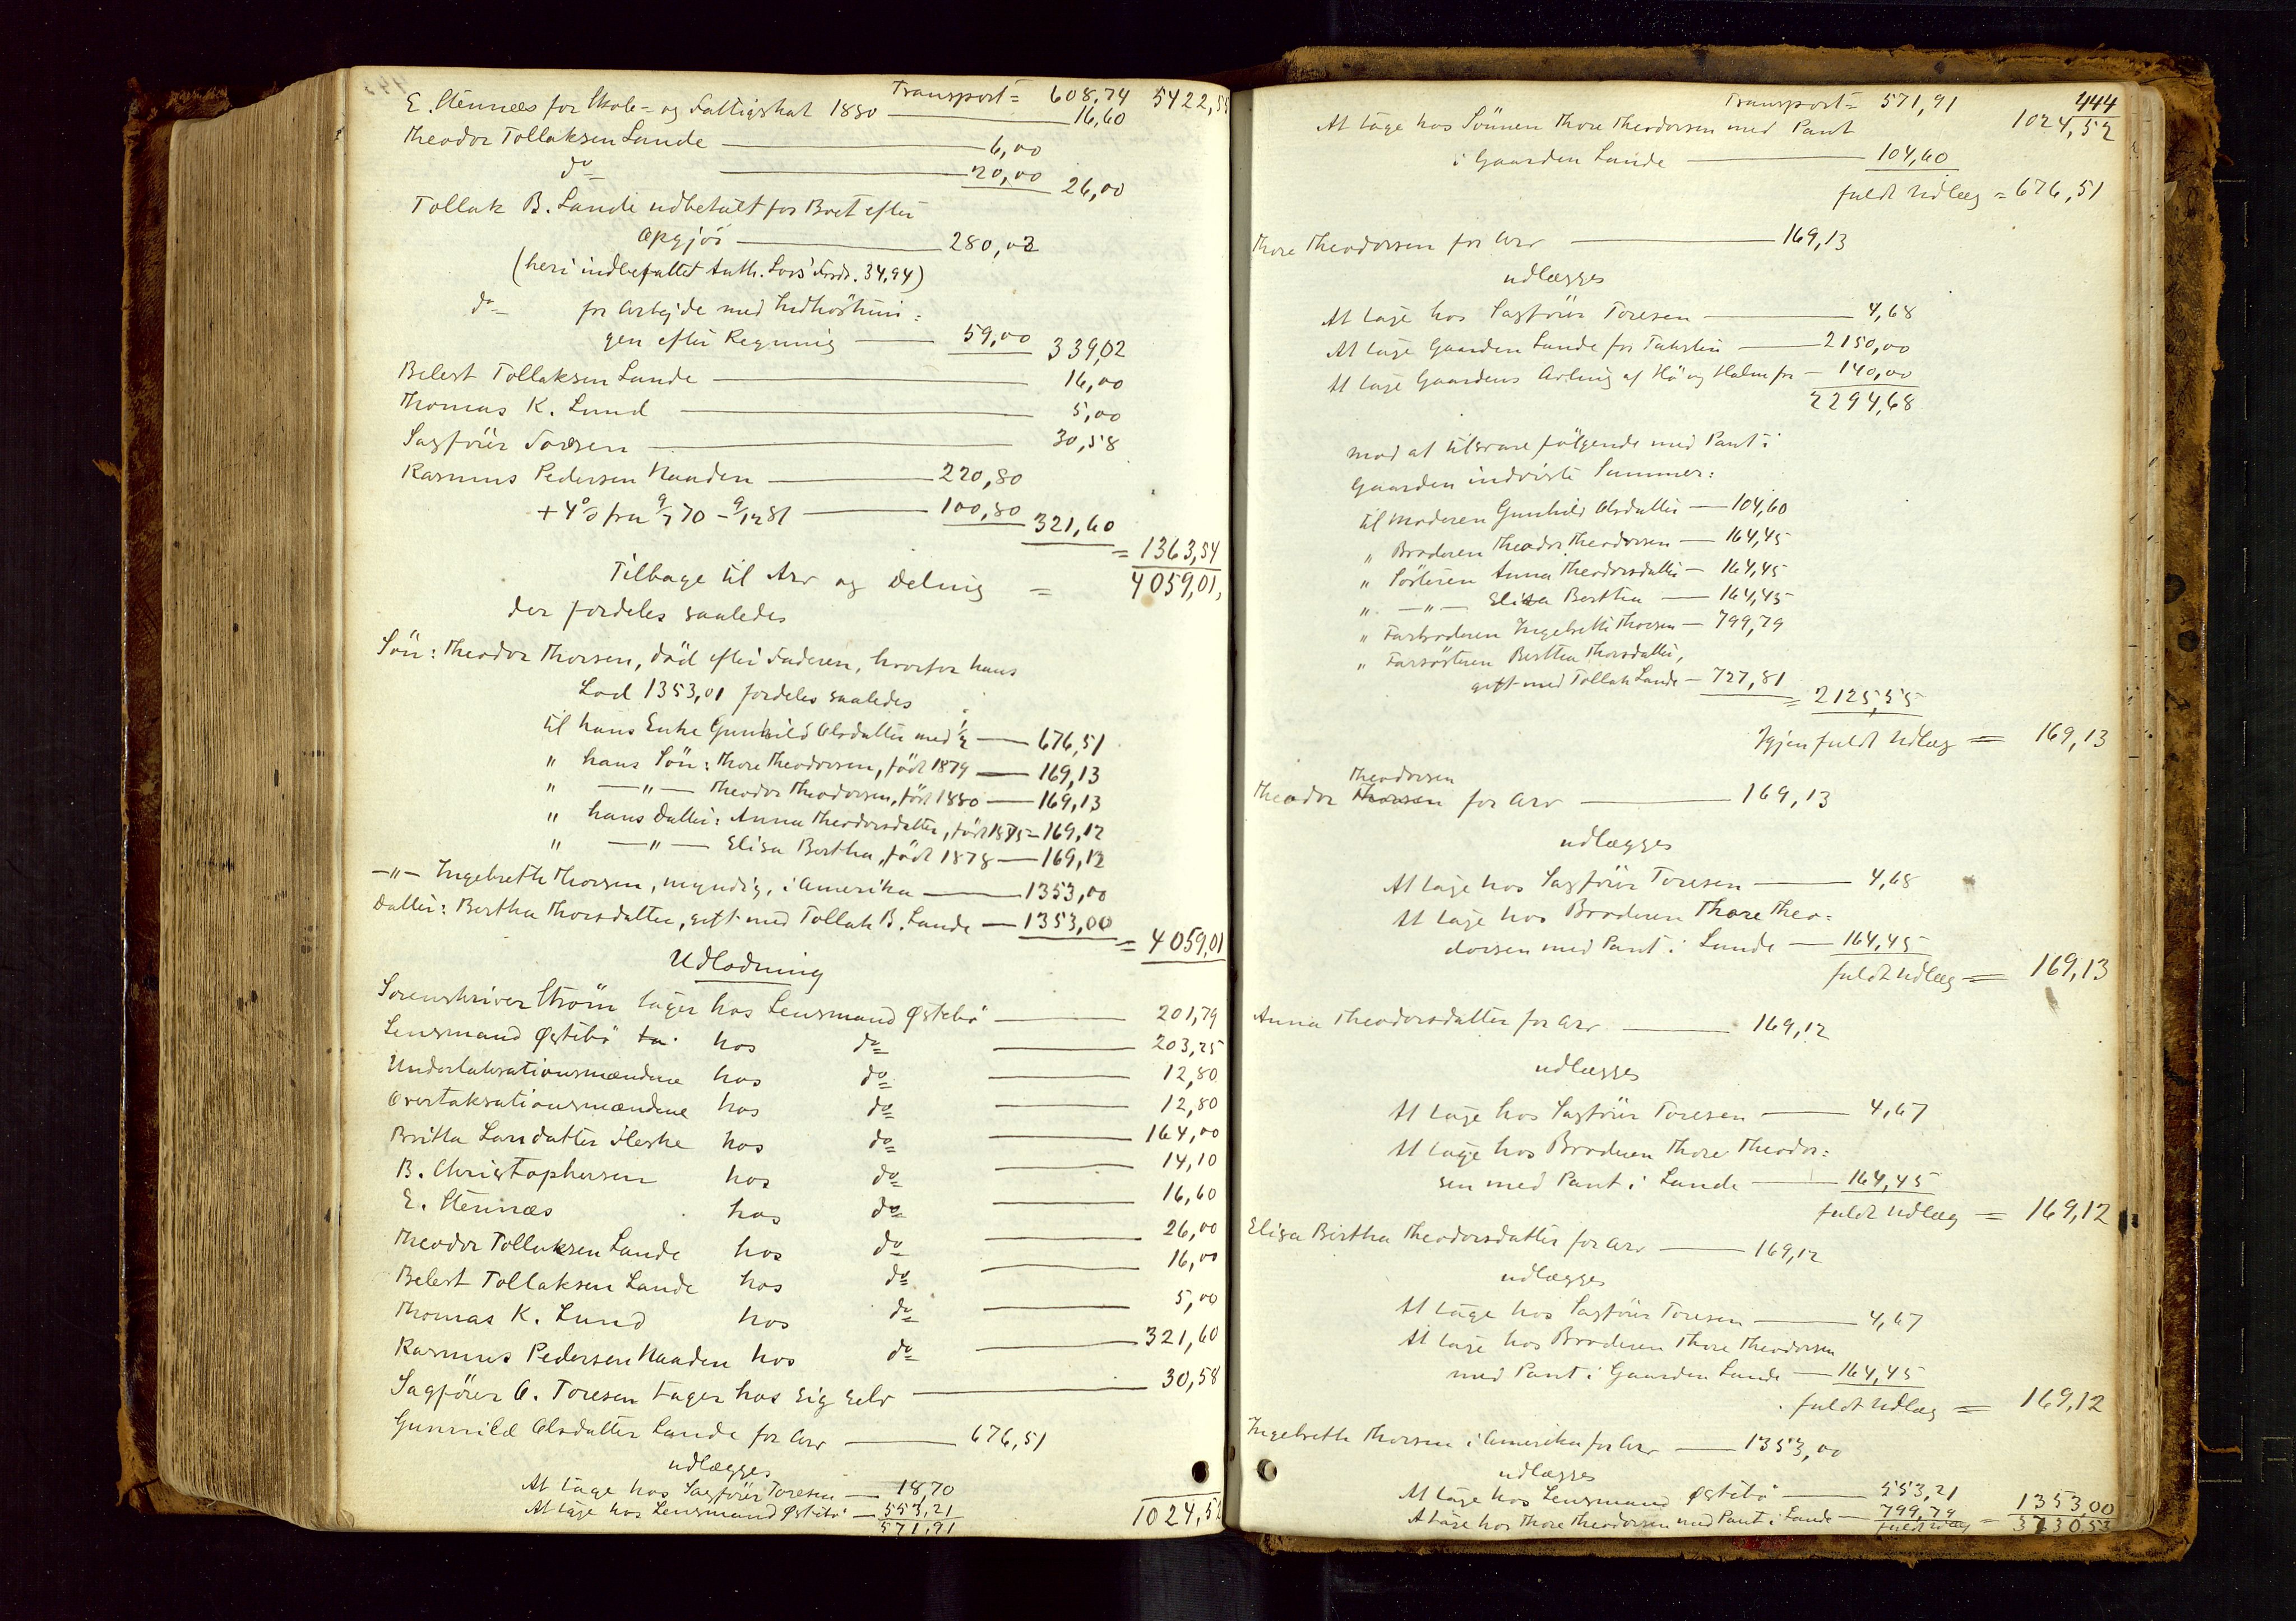 Transport = 608,74 5422,55
E. Stennæs for Skole- og Fattigskat 1880 — 16,60
Theodor Tollaksen Lunde — 6,00
do — 20,00 26,00
Tollak B. Lunde udbetalt for Boet efter
Opgjör — 280,02
(heri indbefattet Anth. Lars' Fordr. 34,94)
do — for Arbejde med Indhöstnin-
gen efter Regning — 59,00 339,02
Belest Tollaksen Lunde — 16,00
Thomas K. Lund — 5,00
Sagförer Toresen — 30,58
Rasmus Pedersen Naaden — 220,80
+ 4% fra 9/7 70 – 9/12 81 — 100,80 321,60
= 1363,54
Tilbage til Arv og Deling = 4059,01,
der fordeles saaledes
Sön: Theodor Thorsen, död efter Faderen, hvorfor hans
Lod 1353,01 fordeles saaledes:
til hans Enke Gunhild Olsdatter med 1/2 — 676,51
" hans Sön: Thore Theodorsen, födt 1879 — 169,13
" —"— Theodor Theodorsen, födt 1880 — 169,13
" hans Datter: Anna Theodorsdatter, födt 1875 — 169,12
" —"— Elisa Bertha, födt 1878 — 169,12
—"— Ingebreth Thorsen, myndig, i Amerika — 1353,00
Datter: Bertha Thorsdatter, gift med Tollak B. Lunde — 1353,00
= 4059,01
Udlodning
Sorenskriver Ström tager hos Lensmand Østebö — 201,79
Lensmand Østebö ta. hos do — 203,25
Undertaksationsmændene hos do — 12,80
Overtaksationsmændene hos do — 12,80
Britta Larsdatter Heske hos do — 164,00
B. Christophersen hos do — 14,10
E. Stennæs hos do — 16,60
Theodor Tollaksen Lunde hos do — 26,00
Belest Tollaksen Lunde hos do — 16,00
Thomas K. Lund hos do — 5,00
Rasmus Pedersen Naaden hos do — 321,60
Sagförer O. Toresen tager hos sig selv — 30,58
Gunnild Olsdatter Lunde for Arv — 676,51
udlægges
At tage hos Sagförer Toresen — 18,70
At tage hos Lensmand Østebö — 553,21
571,91 1024,52
444
Transport = 571,91 1024,52
At tage hos Sönnen Thore Theodorsen med Pant
i Gaarden Lunde — 104,60
fuldt Udlæg = 676,51
Thore Theodorsen for Arv — 169,13
udlægges
At tage hos Sagförer Toresen — 4,68
At tage Gaarden Lunde for Taksten — 2150,00
At tage Gaardens Avling af Hö og Halm for — 140,00
2294,68
mod at tilsvare fölgende med Pant i
Gaarden indviste Summer:
til Moderen Gunhild Olsdatter — 104,60
" Broderen Theodor Theodorsen — 164,45
" Sösteren Anna Theodorsdatter — 164,45
" —"— Elisa Bertha — 164,45
" Farbroderen Ingebreth Thorsen — 799,79
" Farsösteren Bertha Thorsdatter,
gift med Tollak Lunde — 727,81
= 2125,55
Igjen fuldt Udlæg = 169,13
Theodorsen
Theodor Thorsen for Arv — 169,13
udlægges
At tage hos Sagförer Toresen — 4,68
At tage hos Broderen Thore Theo-
dorsen med Pant i Lunde — 164,45
fuldt Udlæg = 169,13
Anna Theodorsdatter for Arv — 169,12
udlægges
At tage hos Sagförer Toresen — 4,67
At tage hos Broderen Thore Theodor-
sen med Pant i Lunde — 164,45
fuldt Udlæg = 169,12
Elisa Bertha Theodorsdatter for Arv — 169,12
udlægges
At tage hos Sagförer Toresen — 4,67
At tage hos Broderen Thore Theodorsen
med Pant i Gaarden Lunde — 164,45
fuldt Udlæg = 169,12
Ingebreth Thorsen i Amerika for Arv — 1353,00
udlægges
At tage hos Lensmand Østebö — 553,21
At tage hos Thore Theodorsen med Pant i Lunde — 799,79
fuldt Udlæg = 1353,00
3730,53